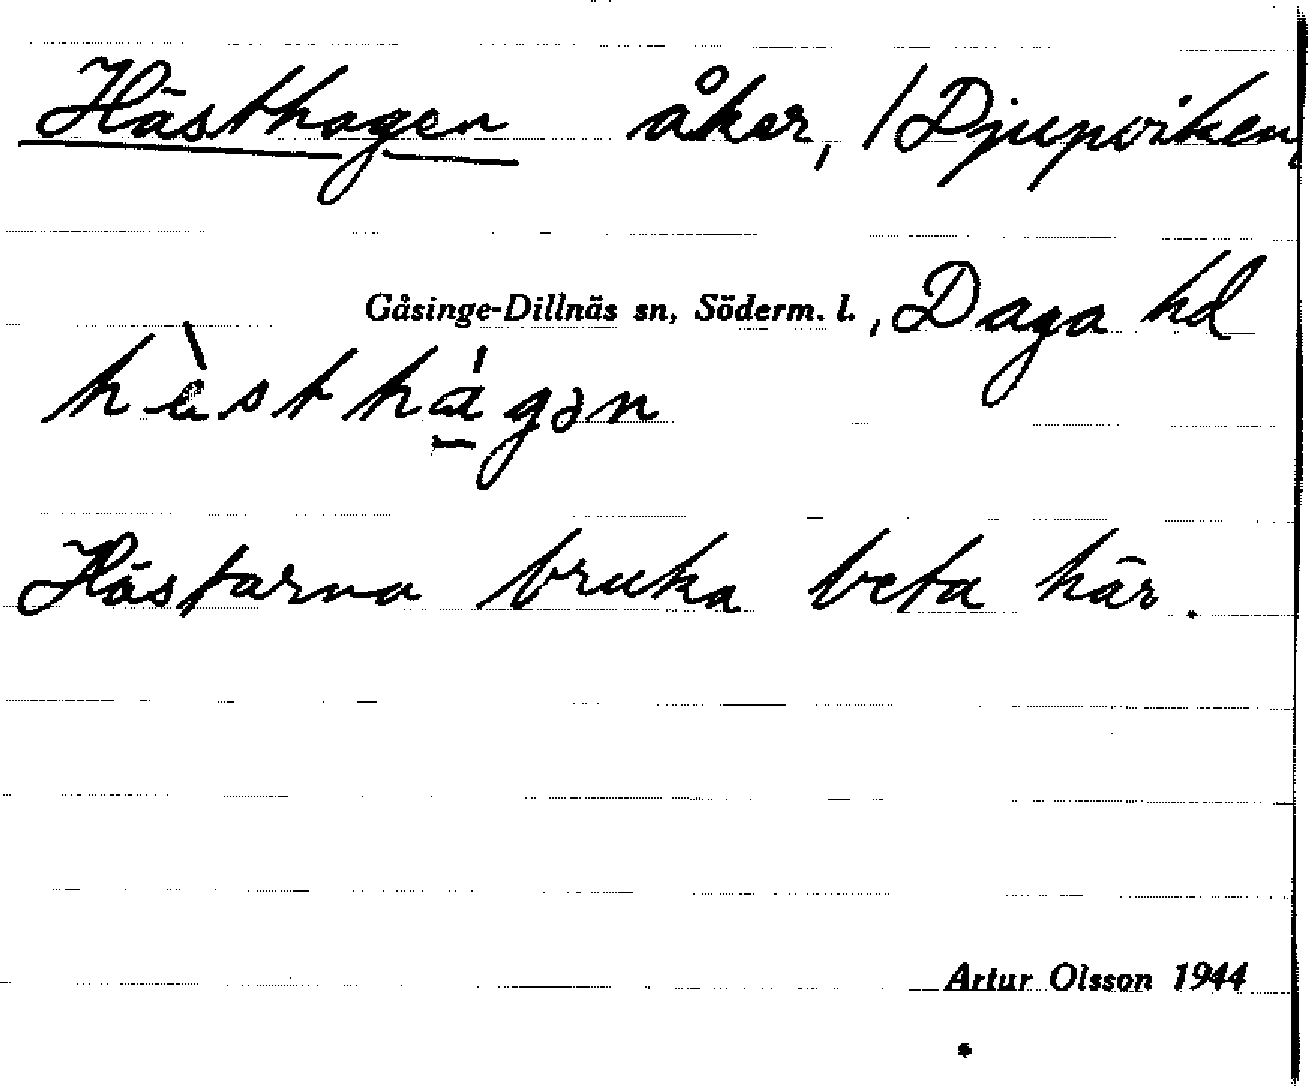 Hästhagen åker, /Djupviken,
Gåsinge-Dillnäs sn, Söderm. l., Daga hd
hὲsthá̱gən
Hästarna bruka beta här.
Artur Olsson 1944